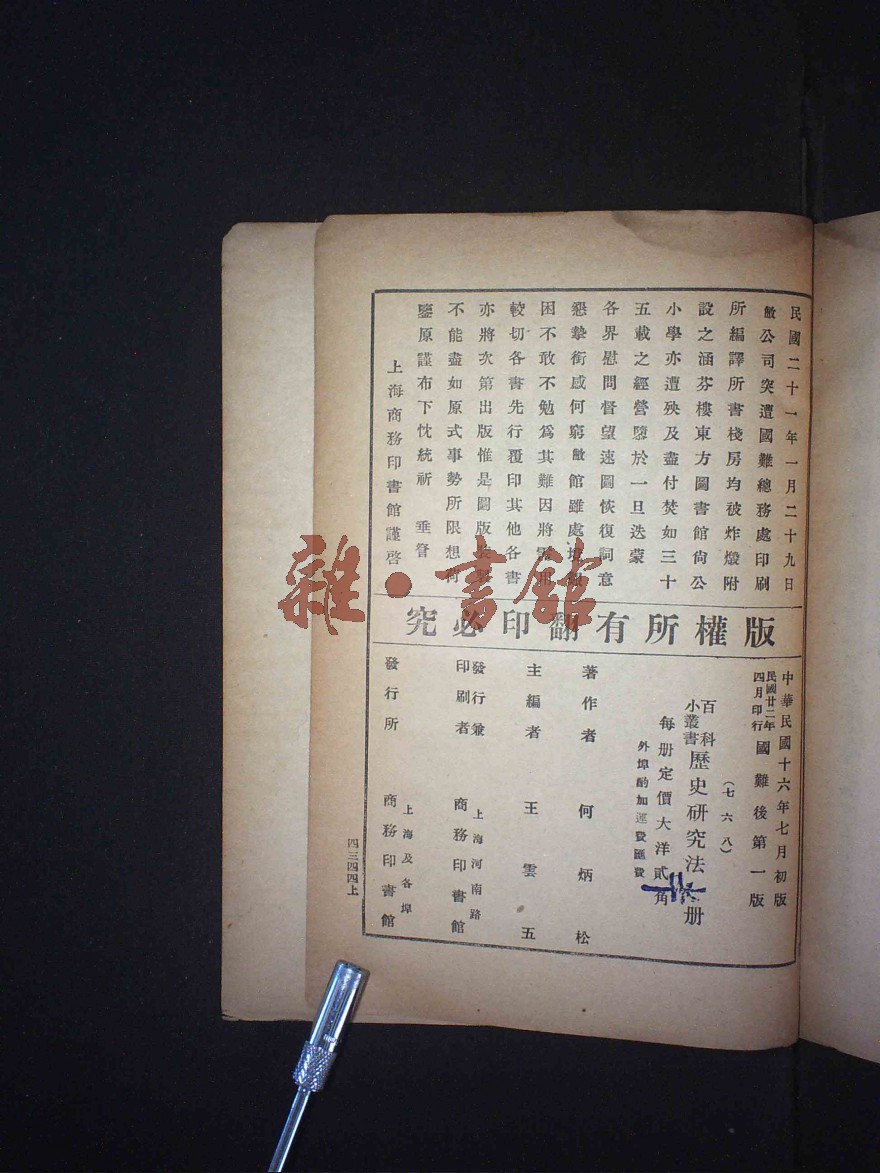 民國二十一年一月二十九日
敝公司突遭國難總務處印刷
所編譯所書棧房均被炸燬附
設之涵芬樓東方圖書館尙公
小學亦遭殃及盡付焚如三十
五載之經營隳於一旦迭蒙
各界慰問督望速圖恢復詞意
懇摯銜感何窮敝館雖處境
困不敢不勉爲其難因將需用
較切各書先行覆印其他各書
亦將次第出版惟是圖版裝製
不能盡如原式事勢所限想荷
鑒原謹布下忱統祈 垂詧
上海商務印書館謹啓
版權所有翻印必究
中華民國十六年七月初版
民國廿二年四月印行 國難後第一版
(七六八)
百科小叢書 歷史研究法 册
每册定價大洋貳角
外埠酌加運費匯費
著作者 何炳松
主編者 王雲五
發行兼印刷者 上海河南路 商務印書館
發行所 上海及各埠 商務印書館
四三四四上
雜·書館